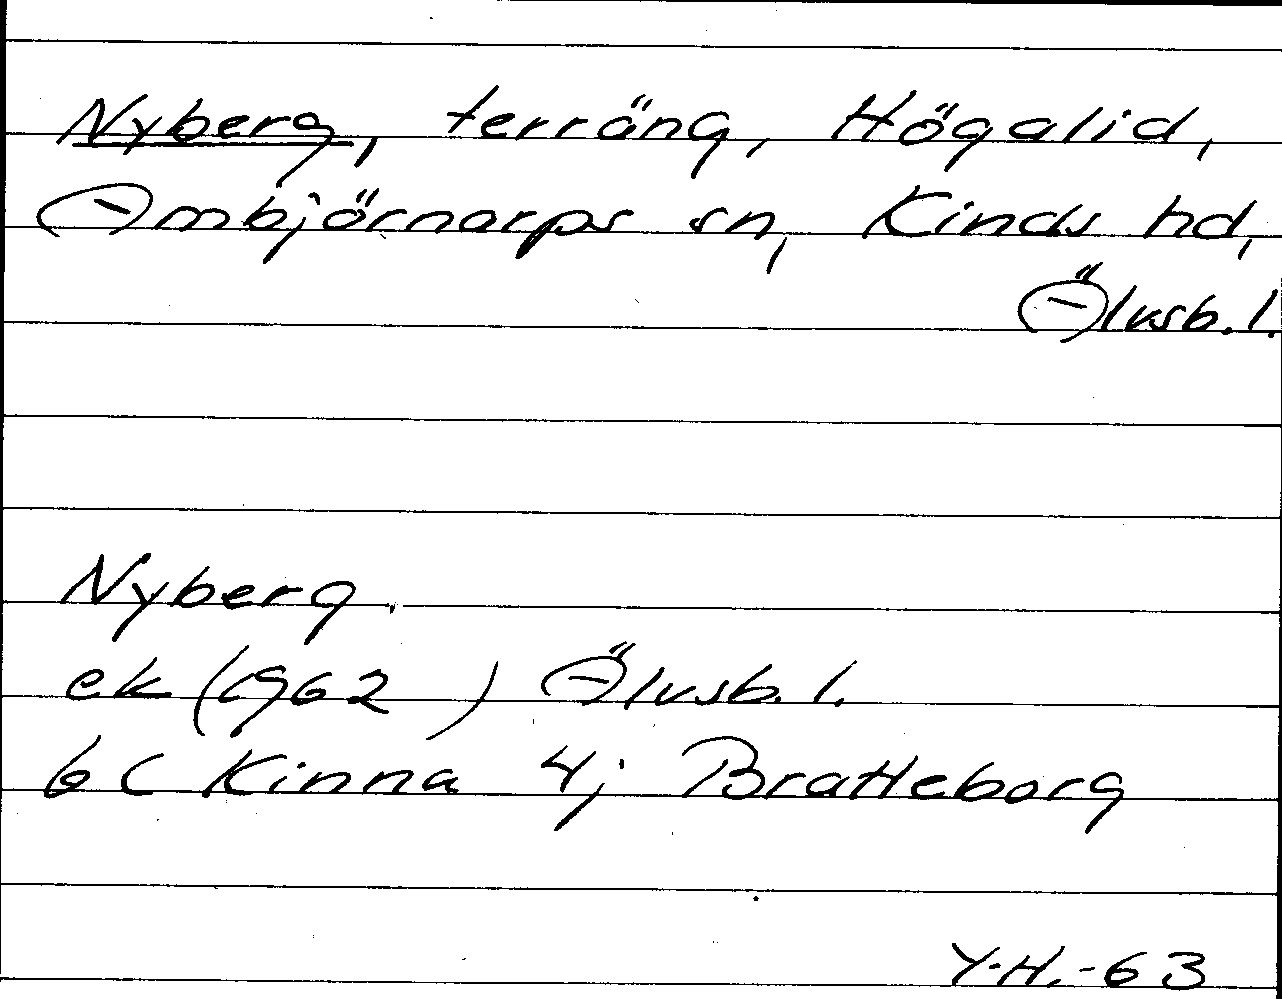 Nyberg, terräng, Högalid,
Ambjörnarps sn, Kinds hd,
Älvsb. l.
Nyberg.
ek (1962 ) Älvsb. l.
6 C Kinna 4j Bratteborg
Y.H.-63